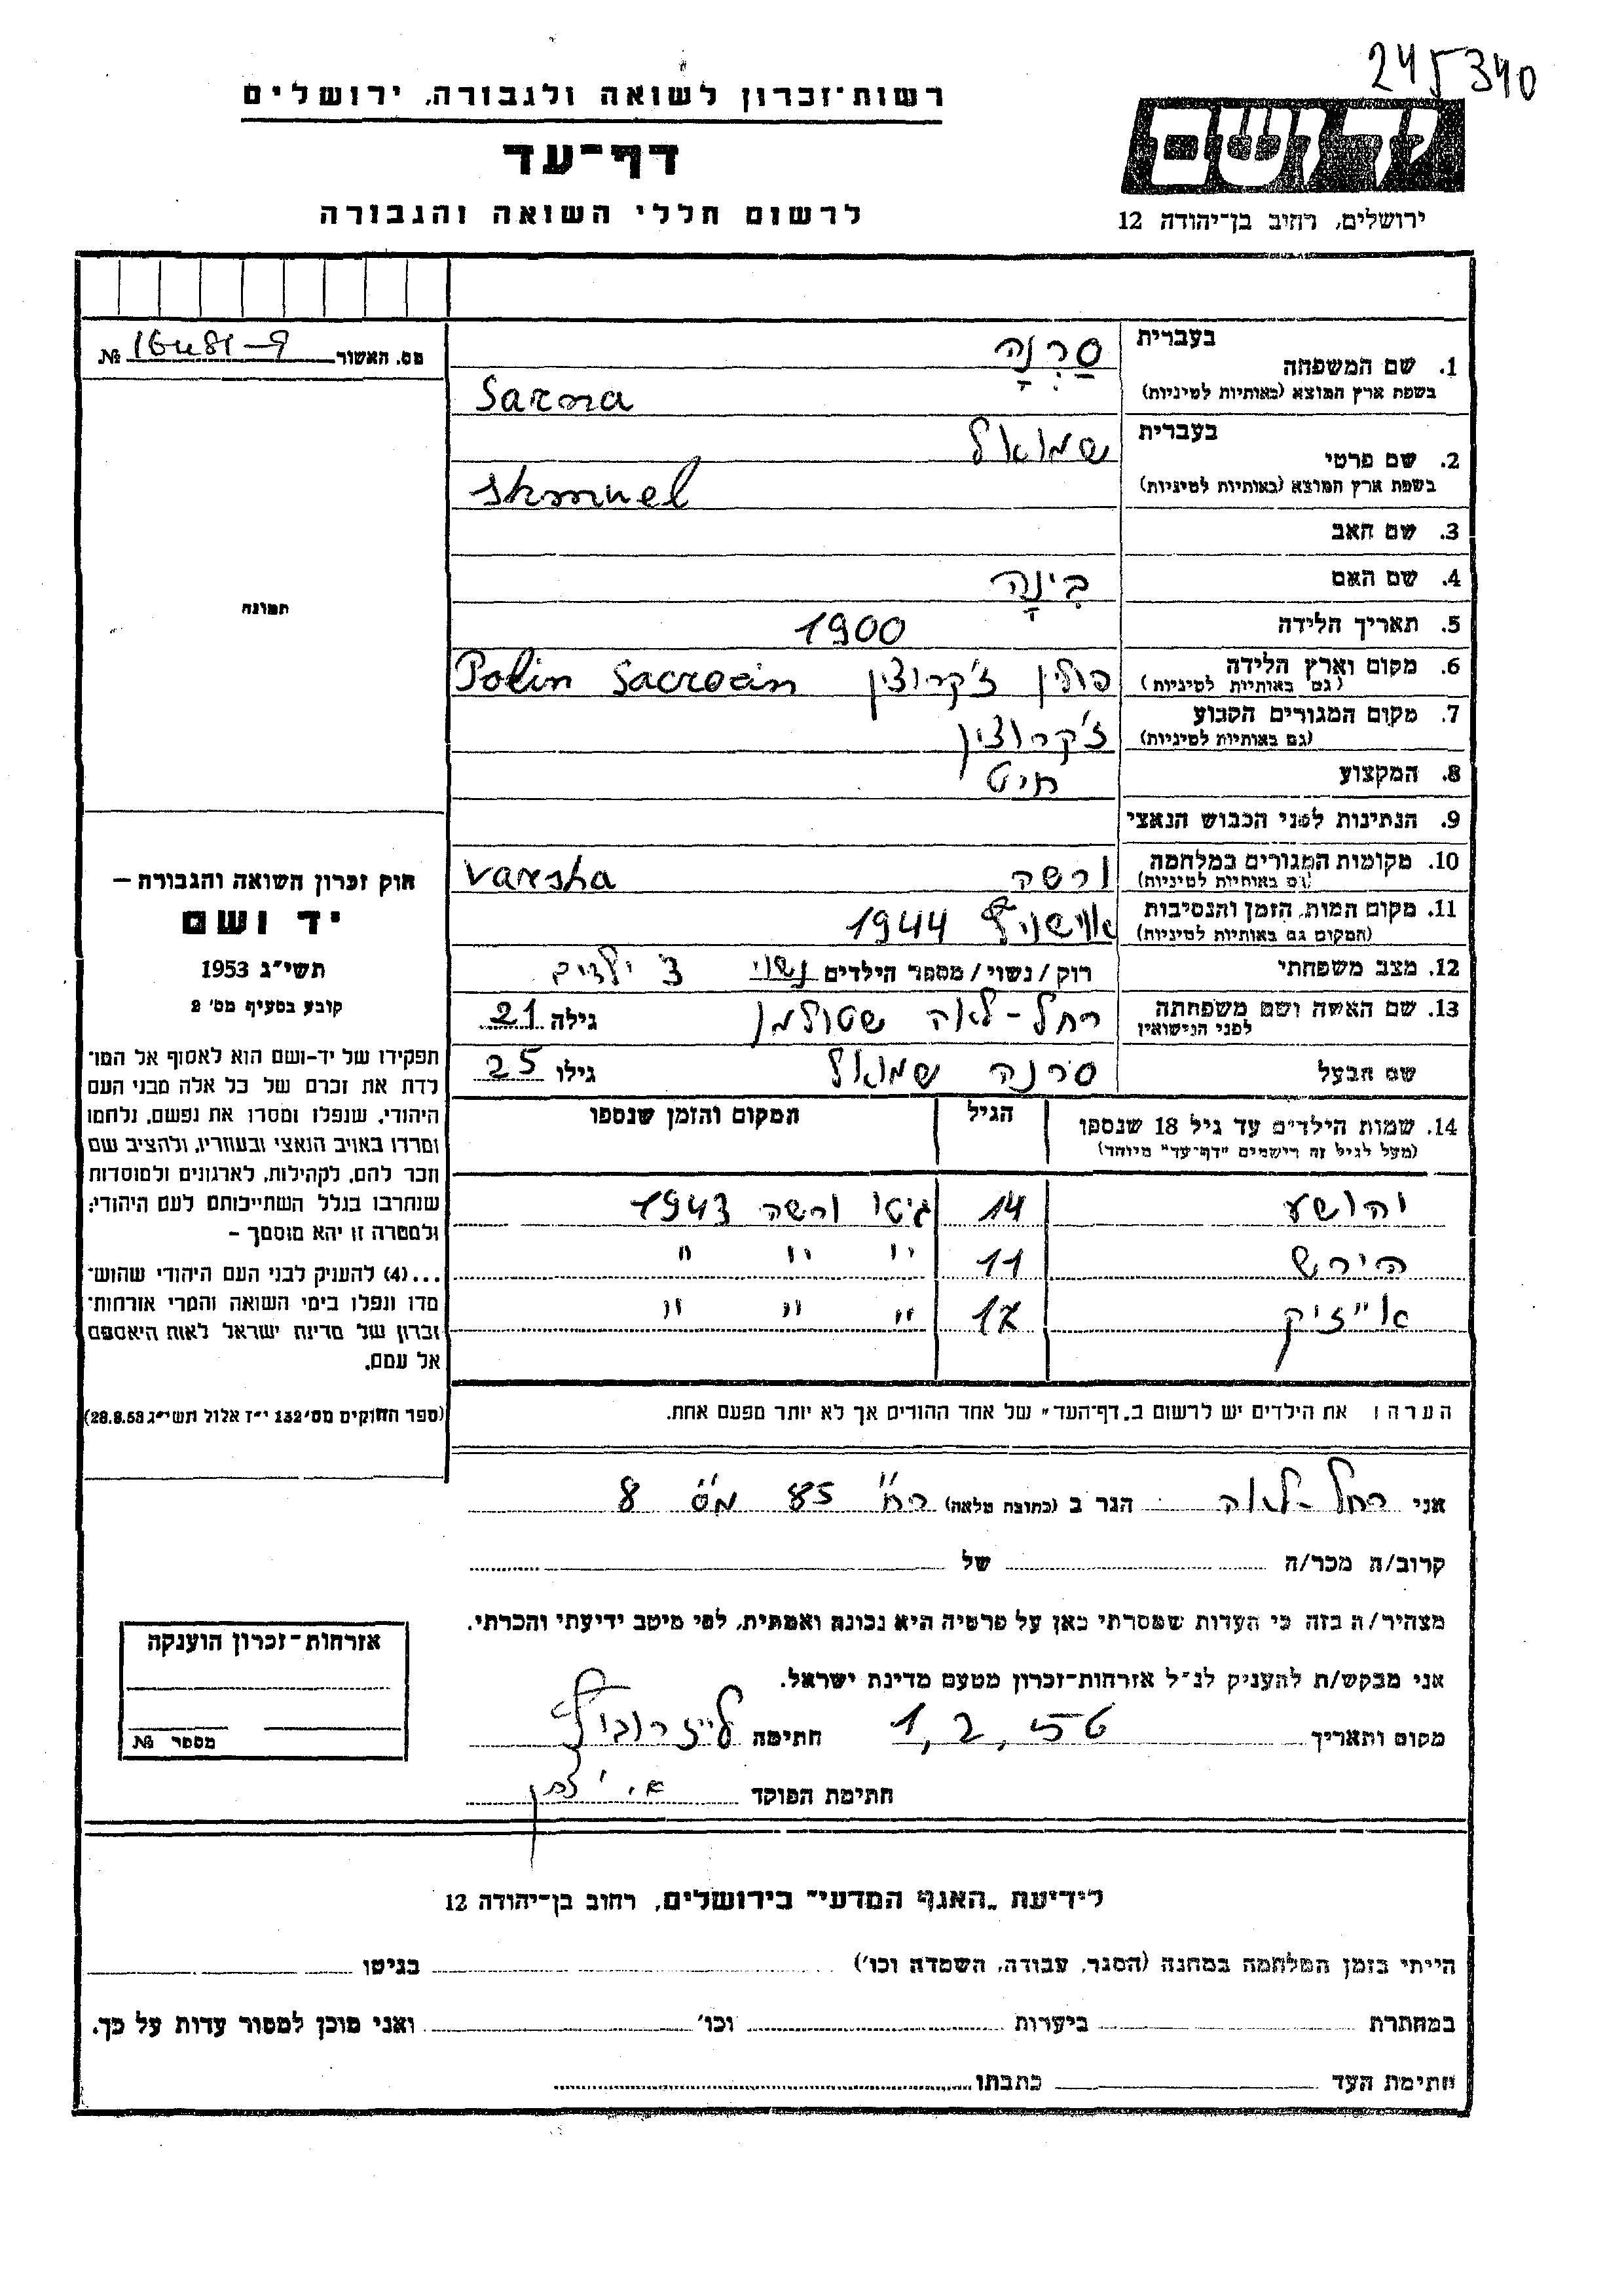 245340
רשות־זכרון לשואה ולגבורה, ירושלים
דף־עד
לרשום חללי השואה והגבורה
יד ושם
ירושלים, רחוב בן־יהודה 12
מס. האשור № 16481-9
בעברית
סַרְנָה
1. שם המשפחה
בשפת ארץ המוצא (באותיות לטיניות)
Sarna
בעברית
שמואל
2. שם פרטי
בשפת ארץ המוצא (באותיות לטיניות)
Shmuel
3. שם האב
4. שם האם
בִּינָה
5. תאריך הלידה
1900
6. מקום וארץ הלידה
(גם באותיות לטיניות)
פולין ז'קרוצין Polin Sacrocin
7. מקום המגורים הקבוע
(גם באותיות לטיניות)
ז'קרוצין
8. המקצוע
חייט
9. הנתינות לפני הכבוש הנאצי
10. מקומות המגורים במלחמה
(גם באותיות לטיניות)
ורשה Varsha
11. מקום המות, הזמן והנסיבות
(המקום גם באותיות לטיניות)
1944
12. מצב משפחתי
רוק/נשוי/מספר הילדים נשוי 3 ילדים
13. שם האשה ושם משפחתה
לפני הנישואין
רחל-לאה שטולמן גילה 21
שם הבעל
סרנה שמואל גילו 25
14. שמות הילדים עד גיל 18 שנספו
(מעל לגיל זה רישמים "דף־עד" מיוחד)
הגיל
המקום והזמן שנספו
יהושע 14 גיטו ורשה 1943
הירש 11 " " "
אייזיק 17 " " "
הערה: את הילדים יש לרשום ב„דף־העד" של אחד ההורים אך לא יותר מפעם אחת.
תמונה
חוק זכרון השואה והגבורה –
יד ושם
תשי"ג 1953
קובע בסעיף מס' 2
תפקידו של יד-ושם הוא לאסוף אל המו־
לדת את זכרם של כל אלה מבני העם
היהודי, שנפלו ומסרו את נפשם, נלחמו
ומרדו באויב הנאצי ובעוזריו, ולהציב שם
וזכר להם, לקהילות, לארגונים ולמוסדות
שנחרבו בגלל השתייכותם לעם היהודי;
ולמטרה זו יהא מוסמך –
...(4) להעניק לבני העם היהודי שהוש־
מדו ונפלו בימי השואה והמרי אזרחות־
זכרון של מדינת ישראל לאות היאספם
אל עמם.
(ספר החוקים מס' 132 י"ז אלול תשי"ג 28.8.53)
אני רחל-לאה הגר ב (כתובת מלאה) רח" 85 מס 8
קרוב/ה מכר/ה של
מצהיר/ה בזה כי העדות שמסרתי כאן על פרטיה היא נכונה ואמתית, לפי מיטב ידיעתי והכרתי.
אני מבקש/ת להעניק לנ"ל אזרחות-זכרון מטעם מדינת ישראל.
מקום ותאריך 1,2,56 חתימה
חתימת הפוקד
אזרחות-זכרון הוענקה
מספר №
לידיעת „האגף המדעי" בירושלים, רחוב בן־יהודה 12
הייתי בזמן המלחמה במחנה (הסגר, עבודה, השמדה וכו') בגיטו
במחתרת ביערות וכו' ואני מוכן למסור עדות על כך.
חתימת העד כתבתו